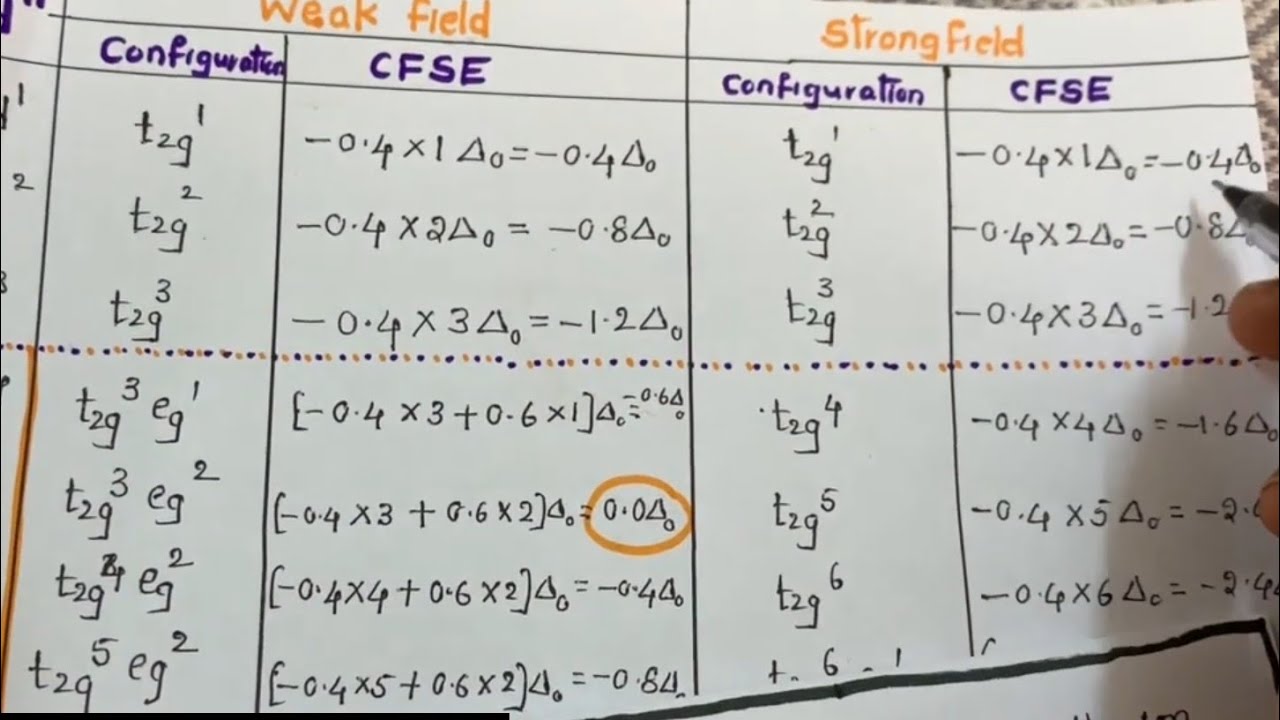 Weak field Strong field
Configuration CFSE Configuration CFSE
1 t₂g¹ −0.4×1Δ₀=−0.4Δ₀ t₂g¹ −0.4×1Δ₀=−0.4Δ₀
2 t₂g² −0.4×2Δ₀ = −0.8Δ₀ t₂g² −0.4×2Δ₀=−0.8Δ₀
3 t₂g³ −0.4×3Δ₀=−1.2Δ₀ t₂g³ −0.4×3Δ₀=−1.2
t₂g³ eg¹ [−0.4×3+0.6×1]Δ₀=−0.6Δ₀ t₂g⁴ −0.4×4Δ₀=−1.6Δ₀
t₂g³ eg² [−0.4×3+0.6×2]Δ₀=0.0Δ₀ t₂g⁵ −0.4×5Δ₀=−2.
t₂g⁴ eg² [−0.4×4+0.6×2]Δ₀=−0.4Δ₀ t₂g⁶ −0.4×6Δ₀=−2.4
t₂g⁵ eg² [−0.4×5+0.6×2]Δ₀=−0.8Δ